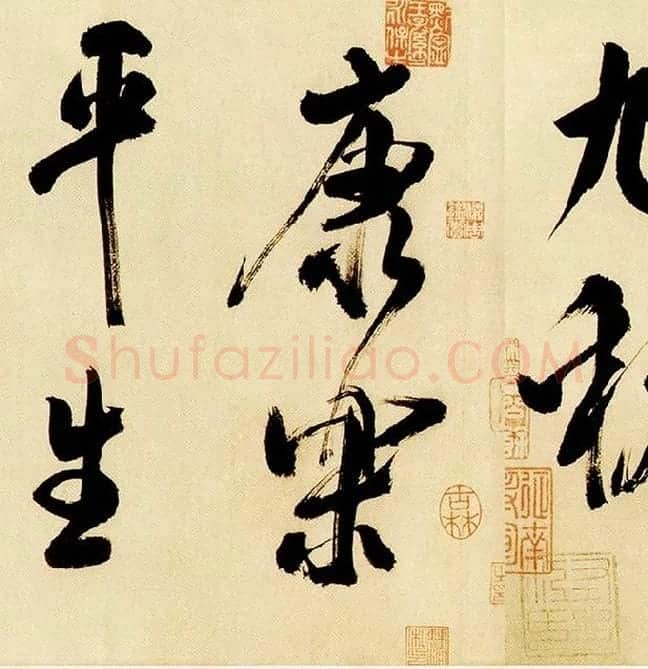 九秋
康樂
平生
Shufaziliao.COM